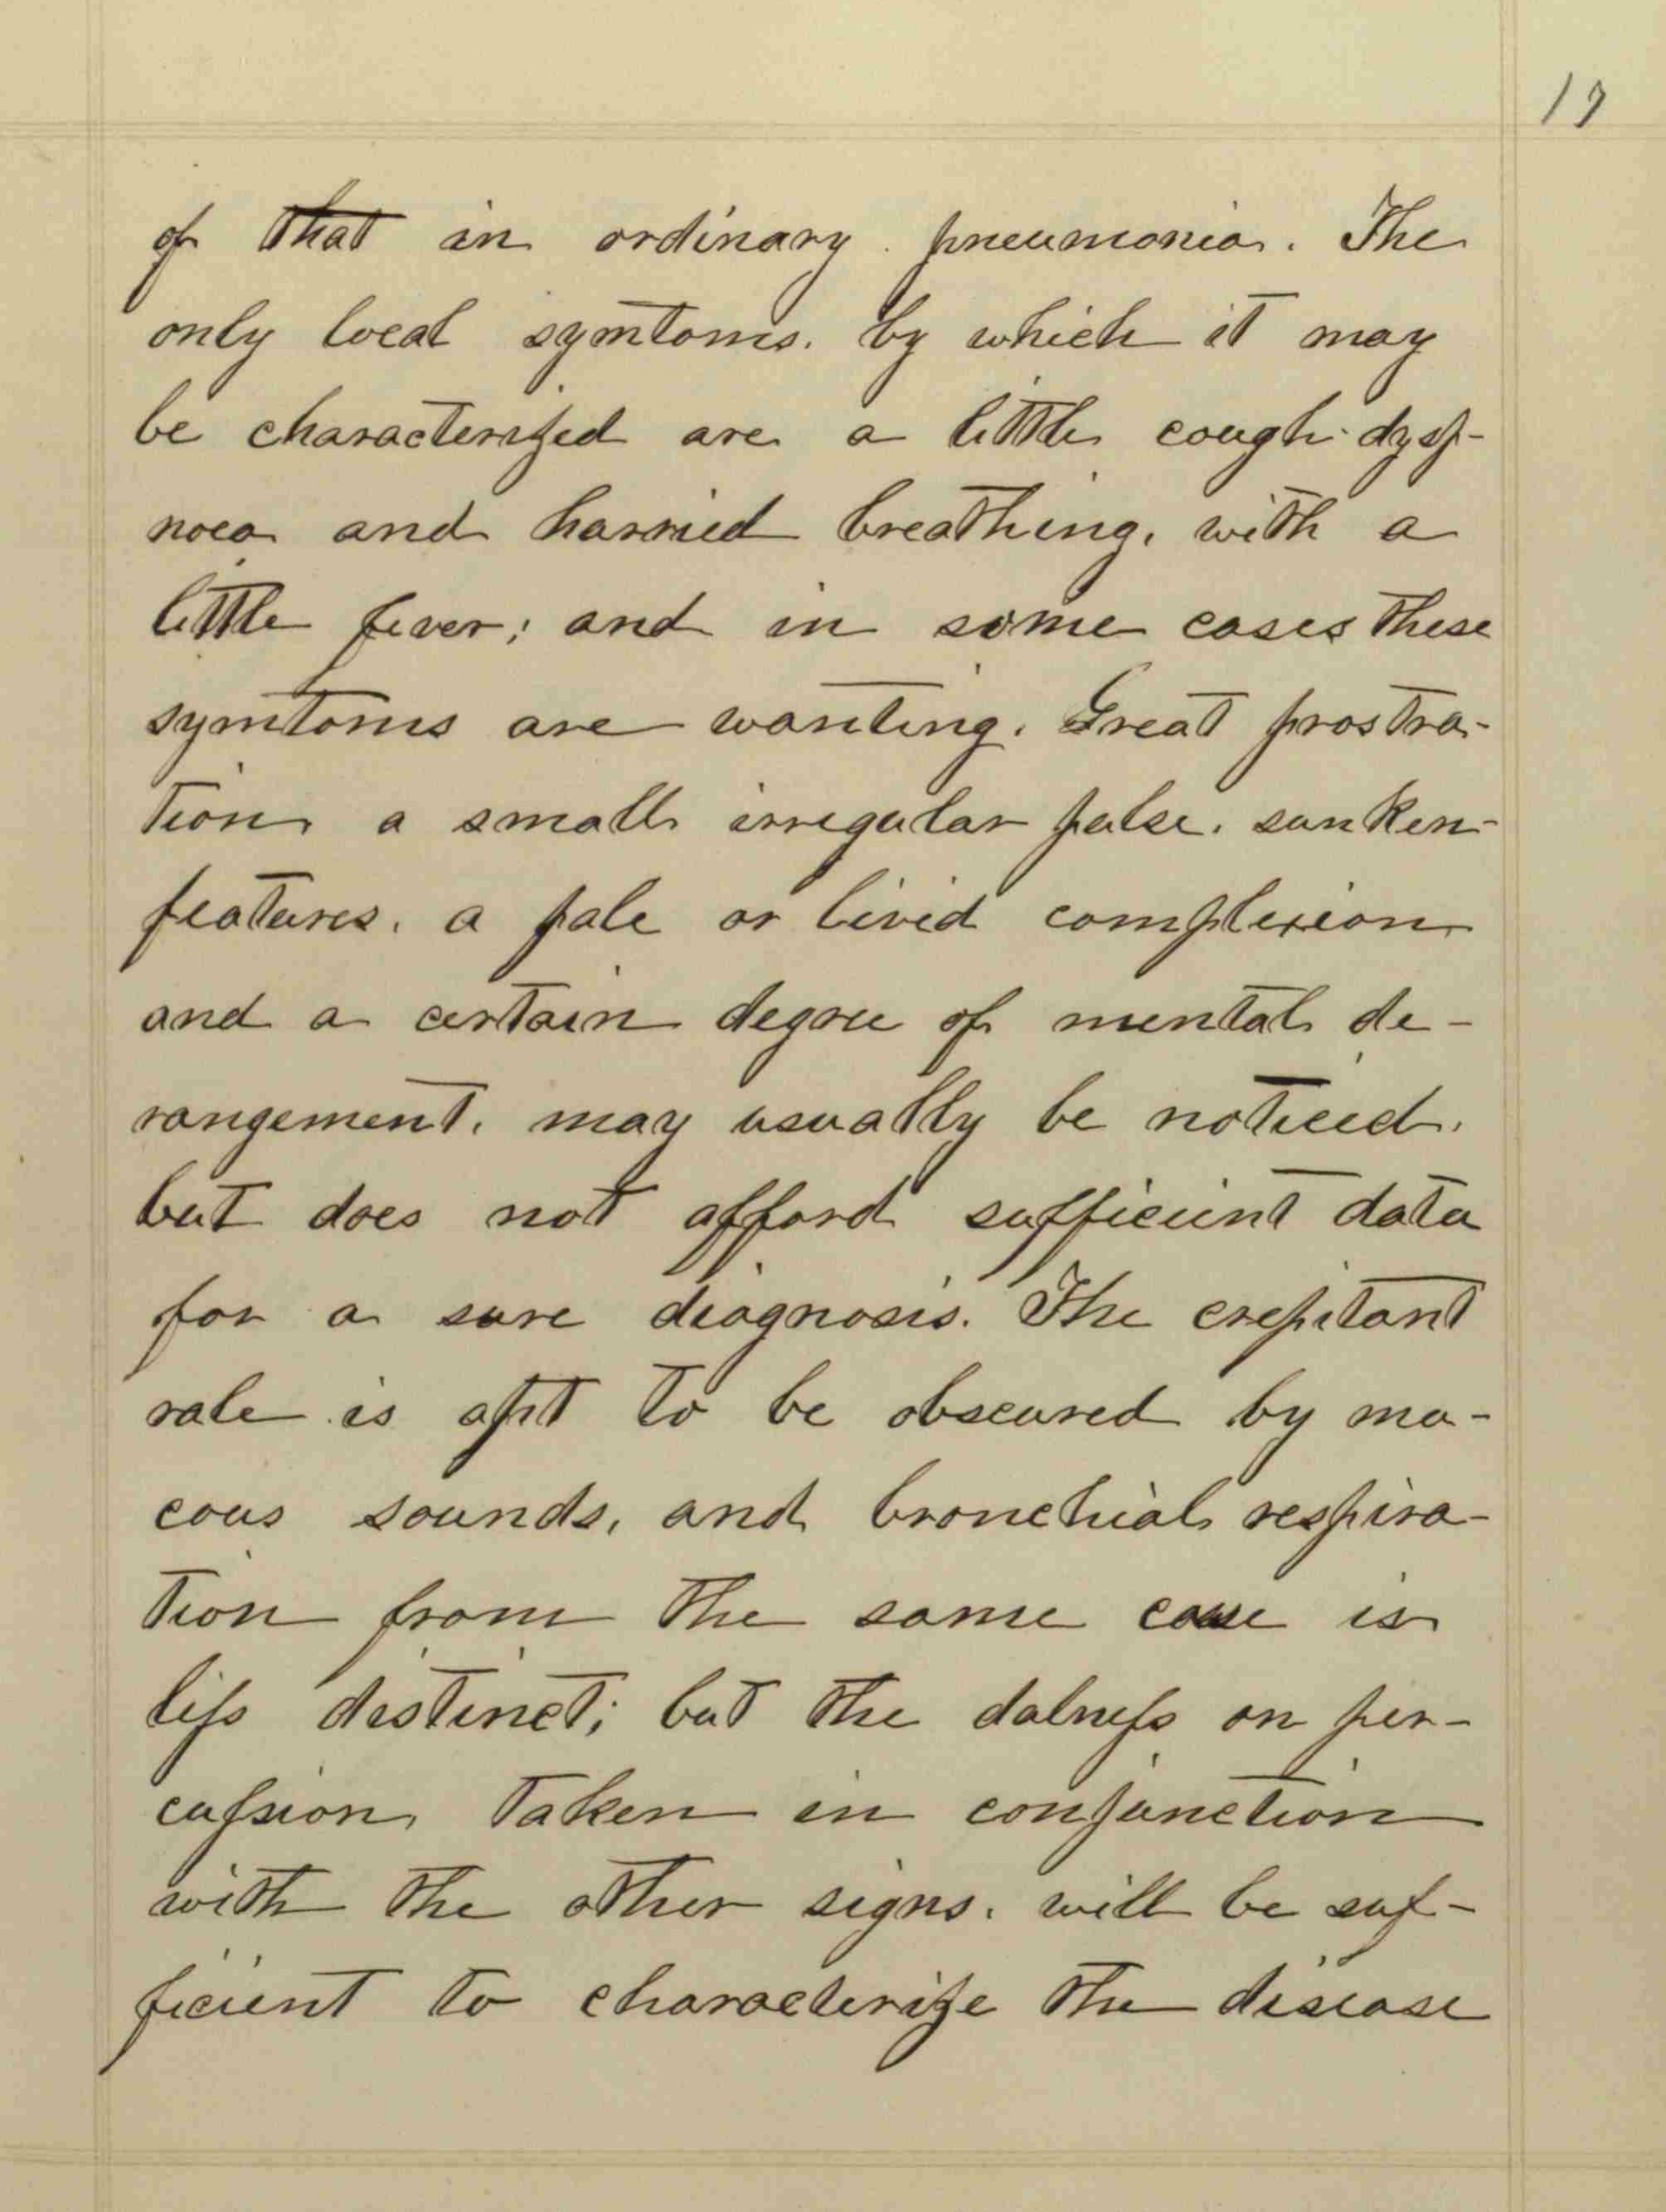 17
of that in ordinary pneumonia. The
only local symtoms. by which it may
be characterized are a little cough dysp-
noea and hurried breathing, with a
little fever; and in some cases these
symtoms are wanting. Great prostra-
tion a small irregular pulse. sunken
features, a pale or livid complexion
and a certain degree of mental de-
rangement, may usually be noticed.
but does not afford sufficient data
for a sure diagnosis. The crepitant
rale is apt to be obscured by mu-
cous sounds, and bronchial respira-
tion from the same cause is
less distinct; but the dulness on per-
cussion, taken in conjunction
with the other signs. will be suf-
ficient to characterize the disease